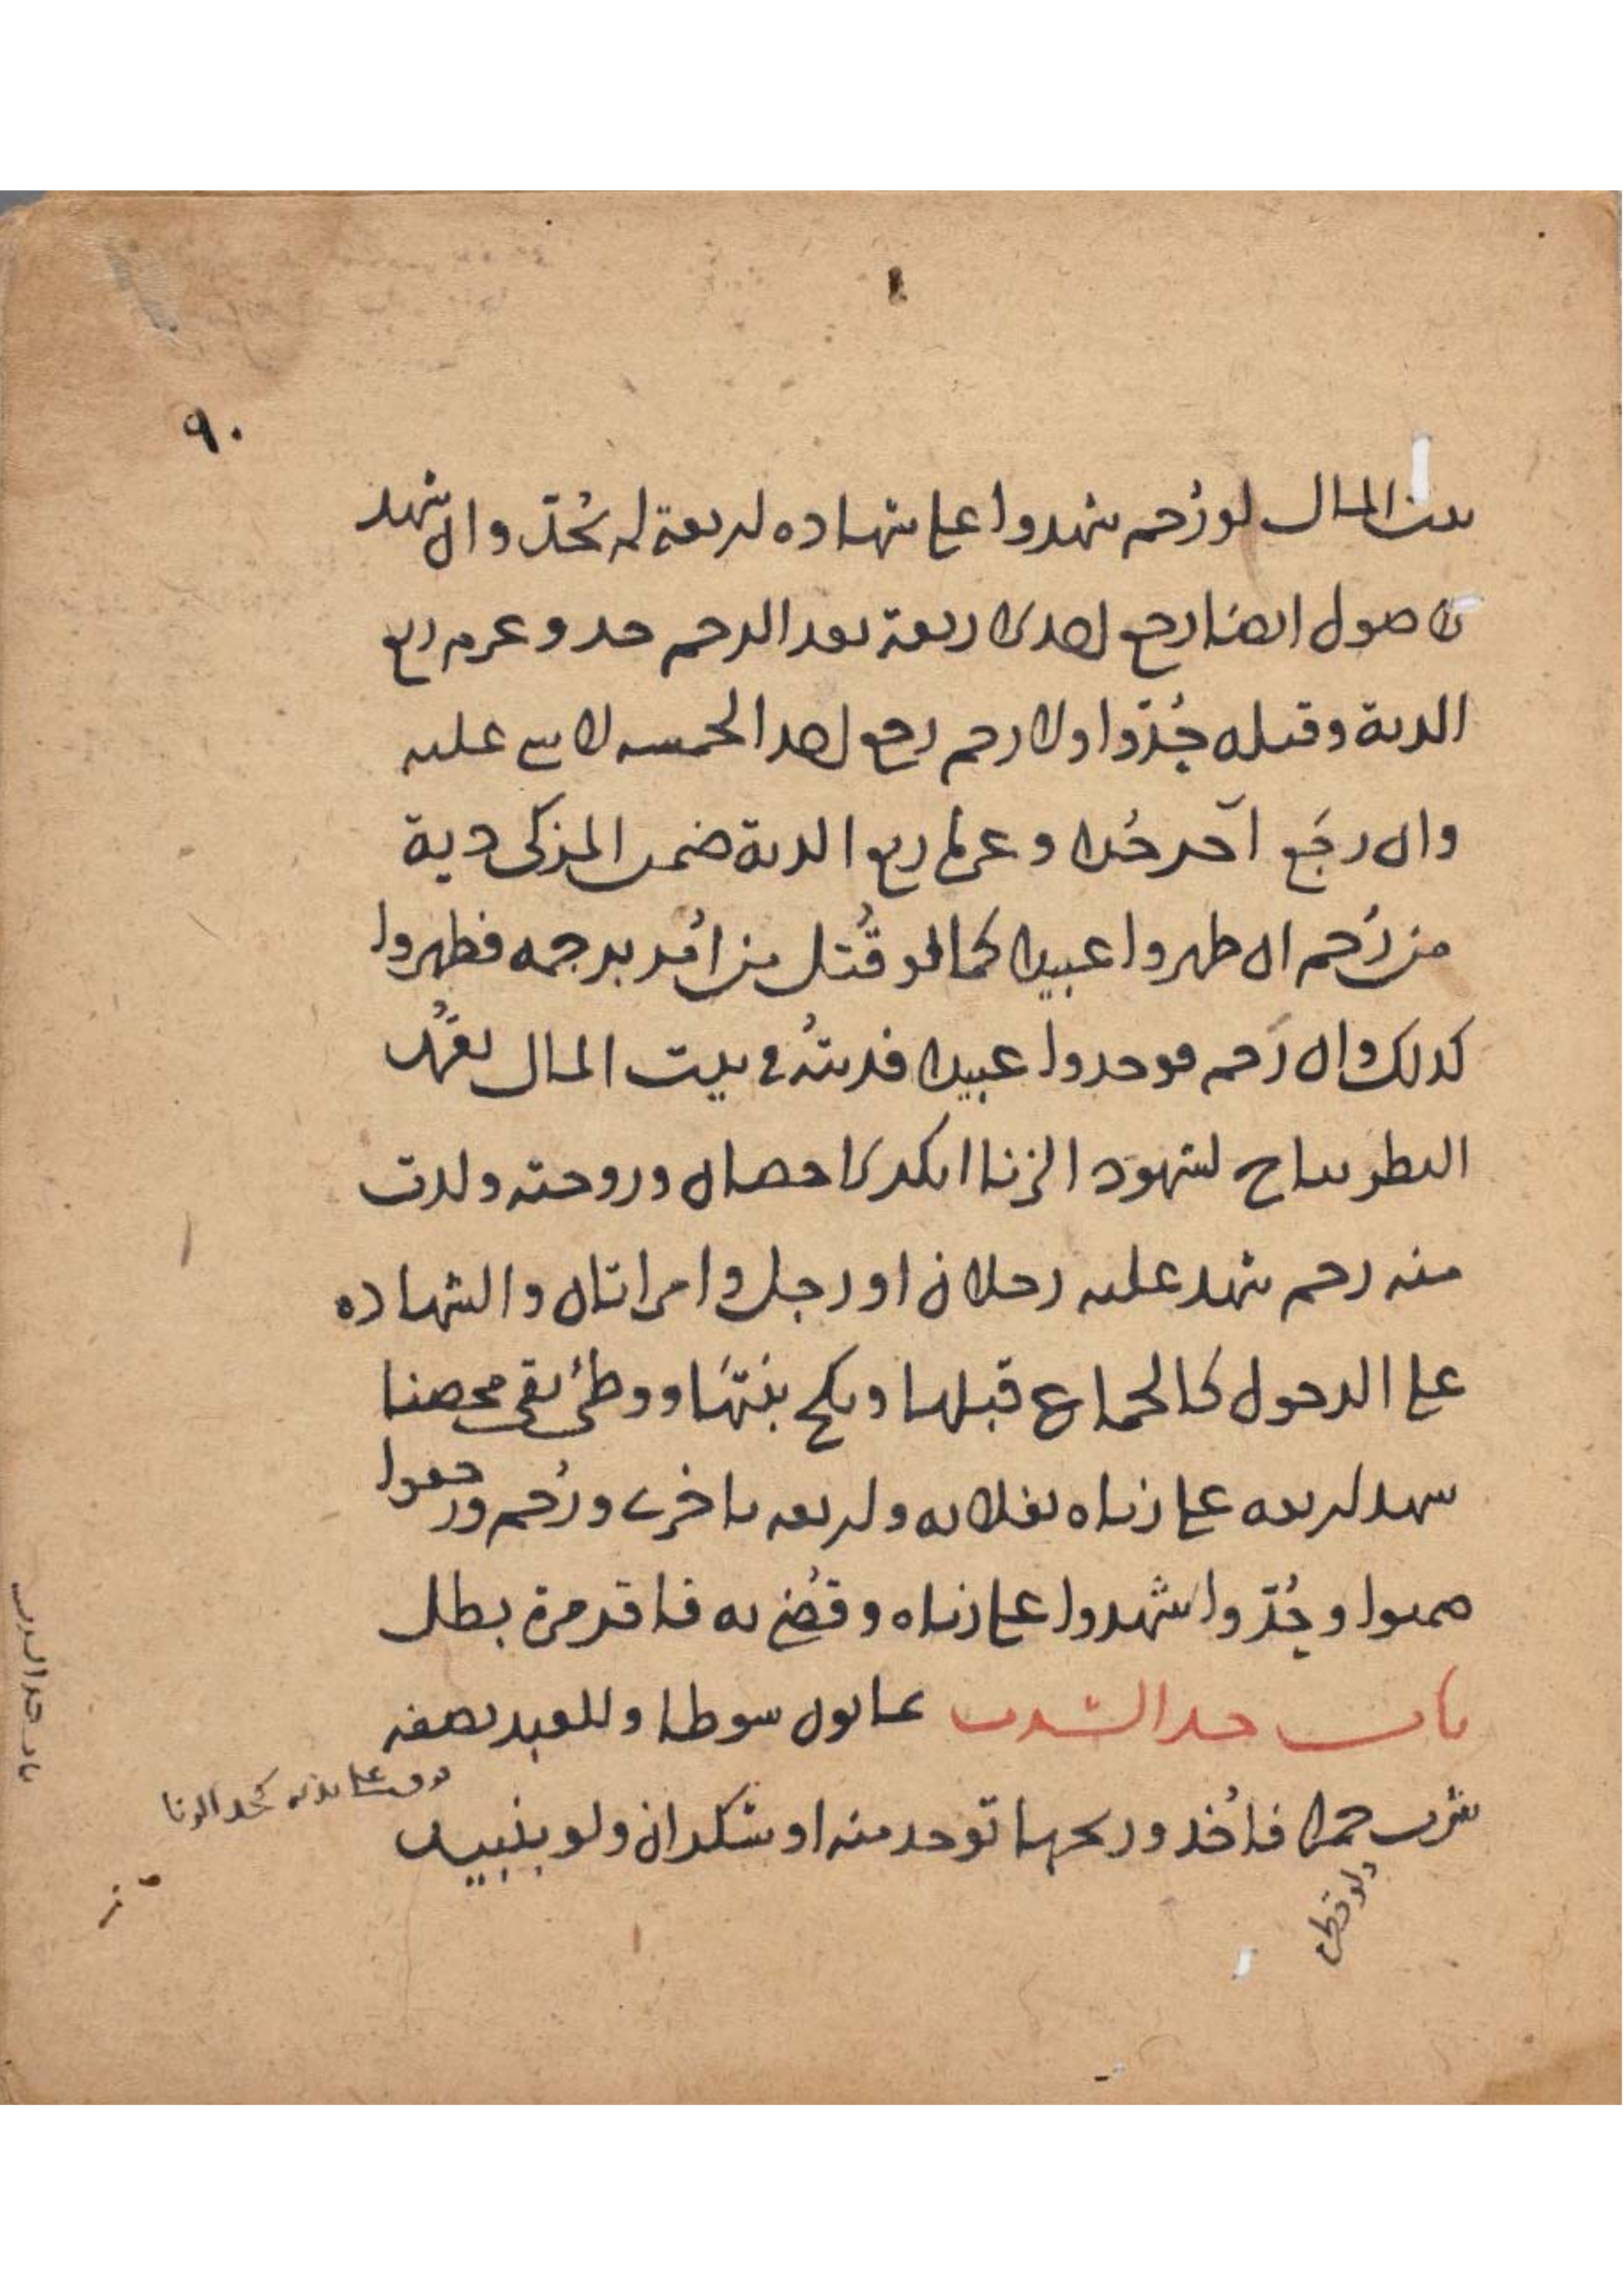 ٩٠
بيت المال لو رُجم شهدوا على شهاده اربعة لم يُحَدّ وان شهد
الاصول ايضا رجع احد الاربعة بعد الرجم حد وغرم ربع
الدية وقبله حُدّوا ولا رجم رجع احد الخمسه لا شي عليه
وان رجَع آخر حُدا وغرما ربع الدية ضمن المزكى دية
من رُجم ان ظهروا عبيدا كما لو قُتل من اُمر برجمه فظهروا
كذلك وان رَجم فوجدوا عبيدا فديتهُ في بيت المال تعمُّد
النظر يباح لشهود الزنا انكر الاحصان وزوجته ولدت
منه رجم شهد عليه رجلان او رجل وامراتان والشهاده
على الدخول كالجماع قبلها ونكح بنتهَا ووطئ بقي محصنا
شهد اربعه على زناه بفلانه واربعه باخرى ورُجم ورجعوا
ضمنوا وحُدّوا شهدوا على زناه وقُضي به فاقر مرة بطل
باب حد الشرب ثمانون سوطا وللعبد نصفه
فرق على بدنه كحد الزنا
شرب خمرا فاُخذ وريحها توجد منه او سَكران ولو بنبيذ
ولو قطرة
باب حد الشرب